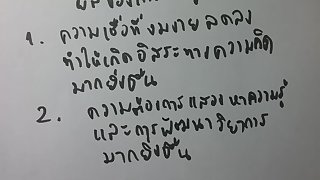 1. ความเชื่อที่งมงายลดลง
ทำให้เกิดอิสระทางความคิด
มากยิ่งขึ้น
2. ความต้องการแสวงหาความรู้
และการพัฒนาวิทยาการ
มากยิ่งขึ้น